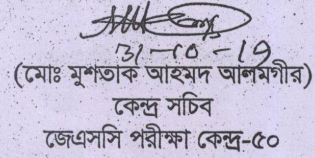 31-10-19
(মোঃ মুশতাক আহমদ আলমগীর)
কেন্দ্র সচিব
জেএসসি পরীক্ষা কেন্দ্র-৫০